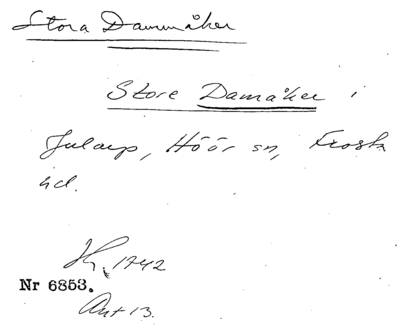 Stora Dammåker
Store Damåker i
Jularp, Höör sn, Frosta
hd.
1742
Nr 6853.
Ant 13.